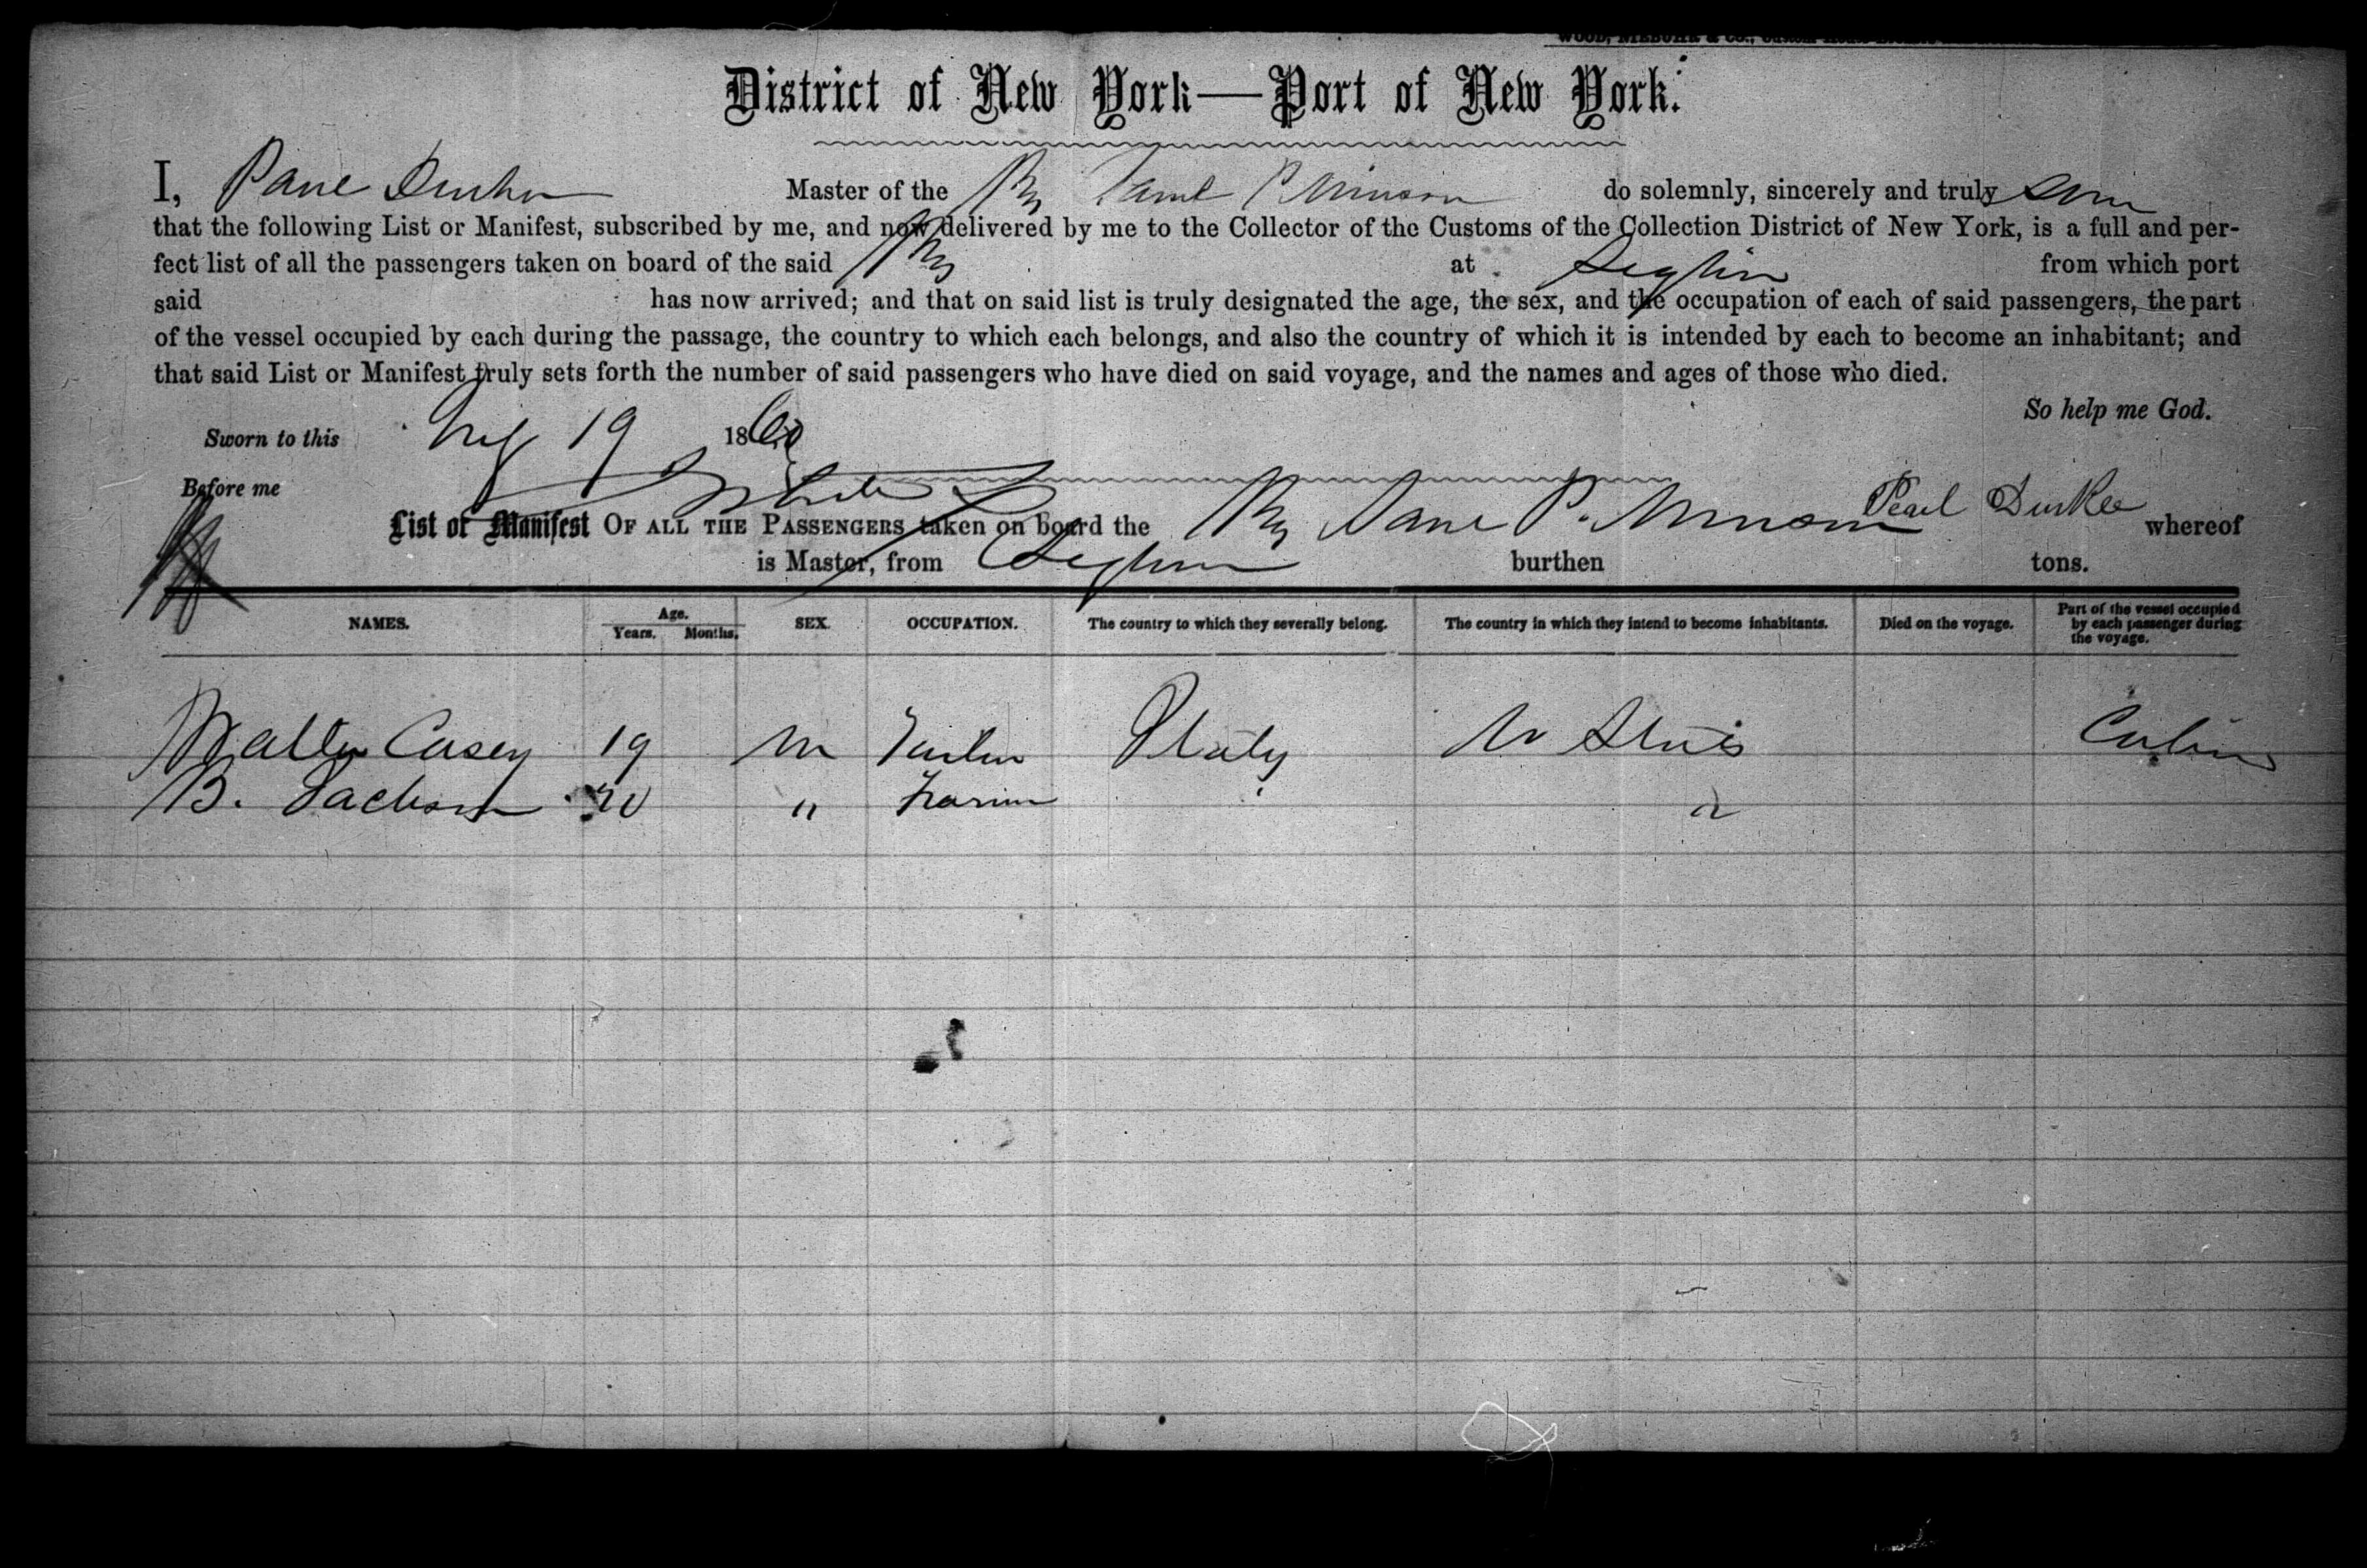 District of New York—Port of New York.
I, Master of the do solemnly, sincerely and truly
that the following List or Manifest, subscribed by me, and now delivered by me to the Collector of the Customs of the Collection District of New York, is a full and per-
fect list of all the passengers taken on board of the said at from which port
said has now arrived; and that on said list is truly designated the age, the sex, and the occupation of each of said passengers, the part
of the vessel occupied by each during the passage, the country to which each belongs, and also the country of which it is intended by each to become an inhabitant; and
that said List or Manifest truly sets forth the number of said passengers who have died on said voyage, and the names and ages of those who died.
So help me God.
Sworn to this 19 1860
Before me
Pearl Durkee
List or Manifest OF ALL THE PASSENGERS taken on board the whereof
is Master, from burthen tons.
NAMES. Age. Years. Months. SEX. OCCUPATION. The country to which they severally belong. The country in which they intend to become inhabitants. Died on the voyage. Part of the vessel occupied by each passenger during the voyage.
Walter Casey 19 M Italy U States Cabin
B. Jackson " "